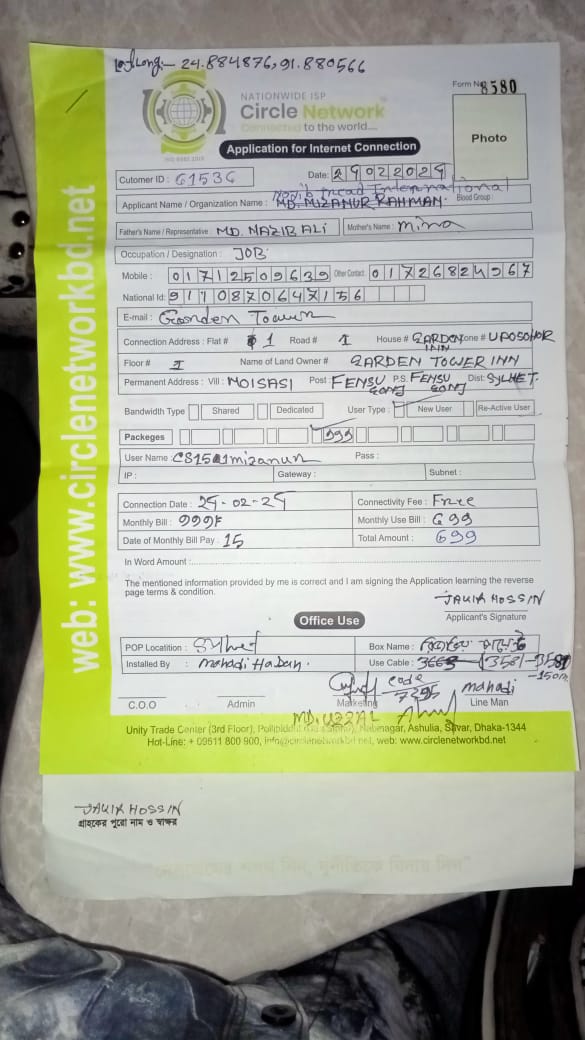 Lat Long:- 24.884876, 91.880566
Form No 8580
NATIONWIDE ISP
Circle Network
Connected to the world....
Photo
Application for Internet Connection
Cutomer ID : 61536 Date: 29022024
International
Applicant Name / Organization Name : MD. MIZANUR RAHMAN. Blood Group :
Father's Name / Representative : MD. NAZIR ALI Mother's Name : mina
Occupation / Designation : JOB
Mobile : 01712509639 Other Contact : 01726824967
National Id: 9110870647156
E-mail : Goonden Towun
Connection Address : Flat # 1 Road # 1 House # GARDEN INN Zone # UPOSOHOR
Floor # I Name of Land Owner # GARDEN TOWER INN
Permanent Address : Vill : MOISASI Post : FENSU GONJ P.S. FENSU GONJ Dist: SYLHET.
Bandwidth Type Shared Dedicated User Type : New User Re-Active User
Packeges 999
User Name : mizanur Pass :
IP : Gateway : Subnet :
Connection Date : 29-02-24 Connectivity Fee : Free
Monthly Bill : 999 Monthly Use Bill : 699
Date of Monthly Bill Pay : 15 Total Amount : 699
In Word Amount :
The mentioned information provided by me is correct and I am signing the Application learning the reverse
page terms & condition.
JAKIR HOSSIN
Applicant's Signature
Office Use
POP Locatition : Sylhet Box Name :
Installed By : Mahadi Hasan. Use Cable : 3581-
-150m
code
7295
mahadi
C.O.O Admin Marketing Line Man
MD. UZZAL
Unity Trade Center (3rd Floor), Nabinagar, Ashulia, Savar, Dhaka-1344
Hot-Line: + 09611 800 900, info@circlenetworkbd.net, web: www.circlenetworkbd.net
web: www.circlenetworkbd.net
JAKIR HOSSIN
গ্রাহকের পুরো নাম ও স্বাক্ষর